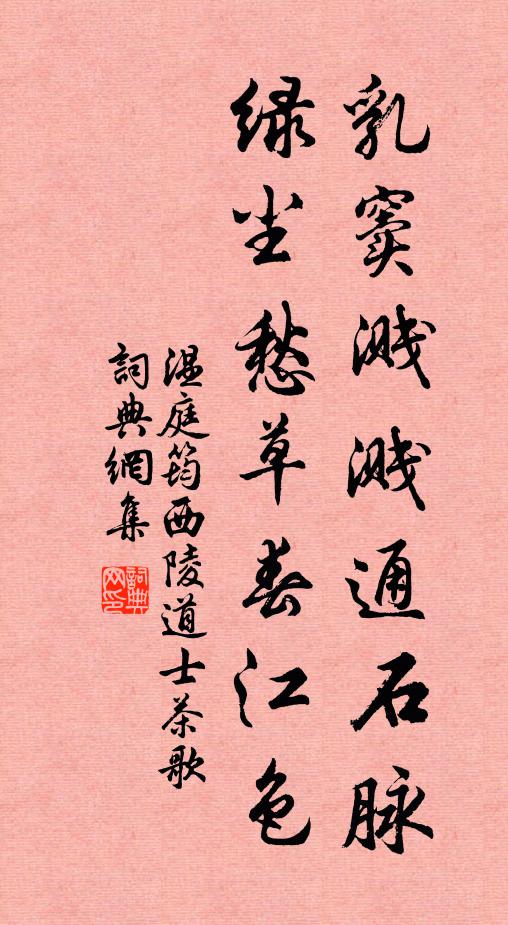 乳窦溅溅通石脉
绿尘愁草春江色
温庭筠西陵道士茶歌
詞典網集
詞典网印